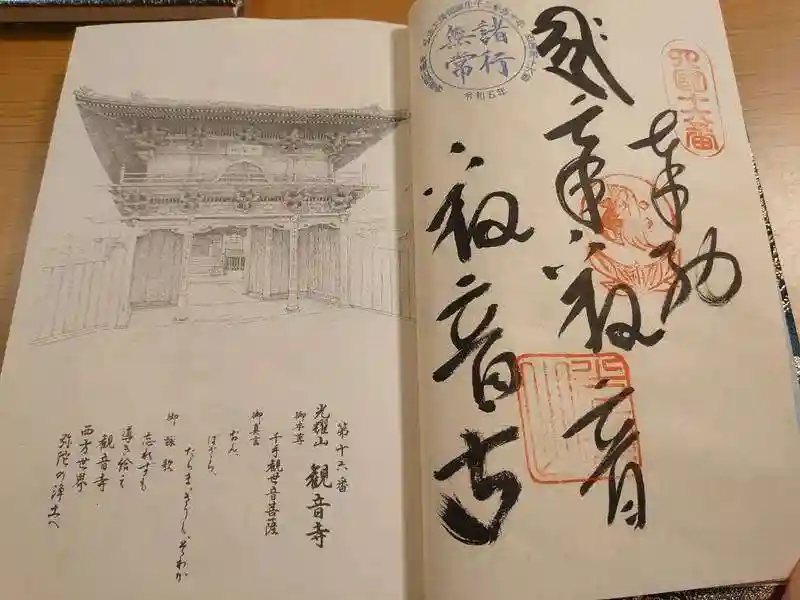 四国十六番
奉納
観音
観音寺
諸行
無常
令和五年
第十六番
光耀山 観音寺
御本尊
千手観世音菩薩
御真言
おん、
ばざら、
たらま、きりく、そわか
御詠歌
忘れずも
導き給え
観音寺
西方世界
弥陀の浄土へ